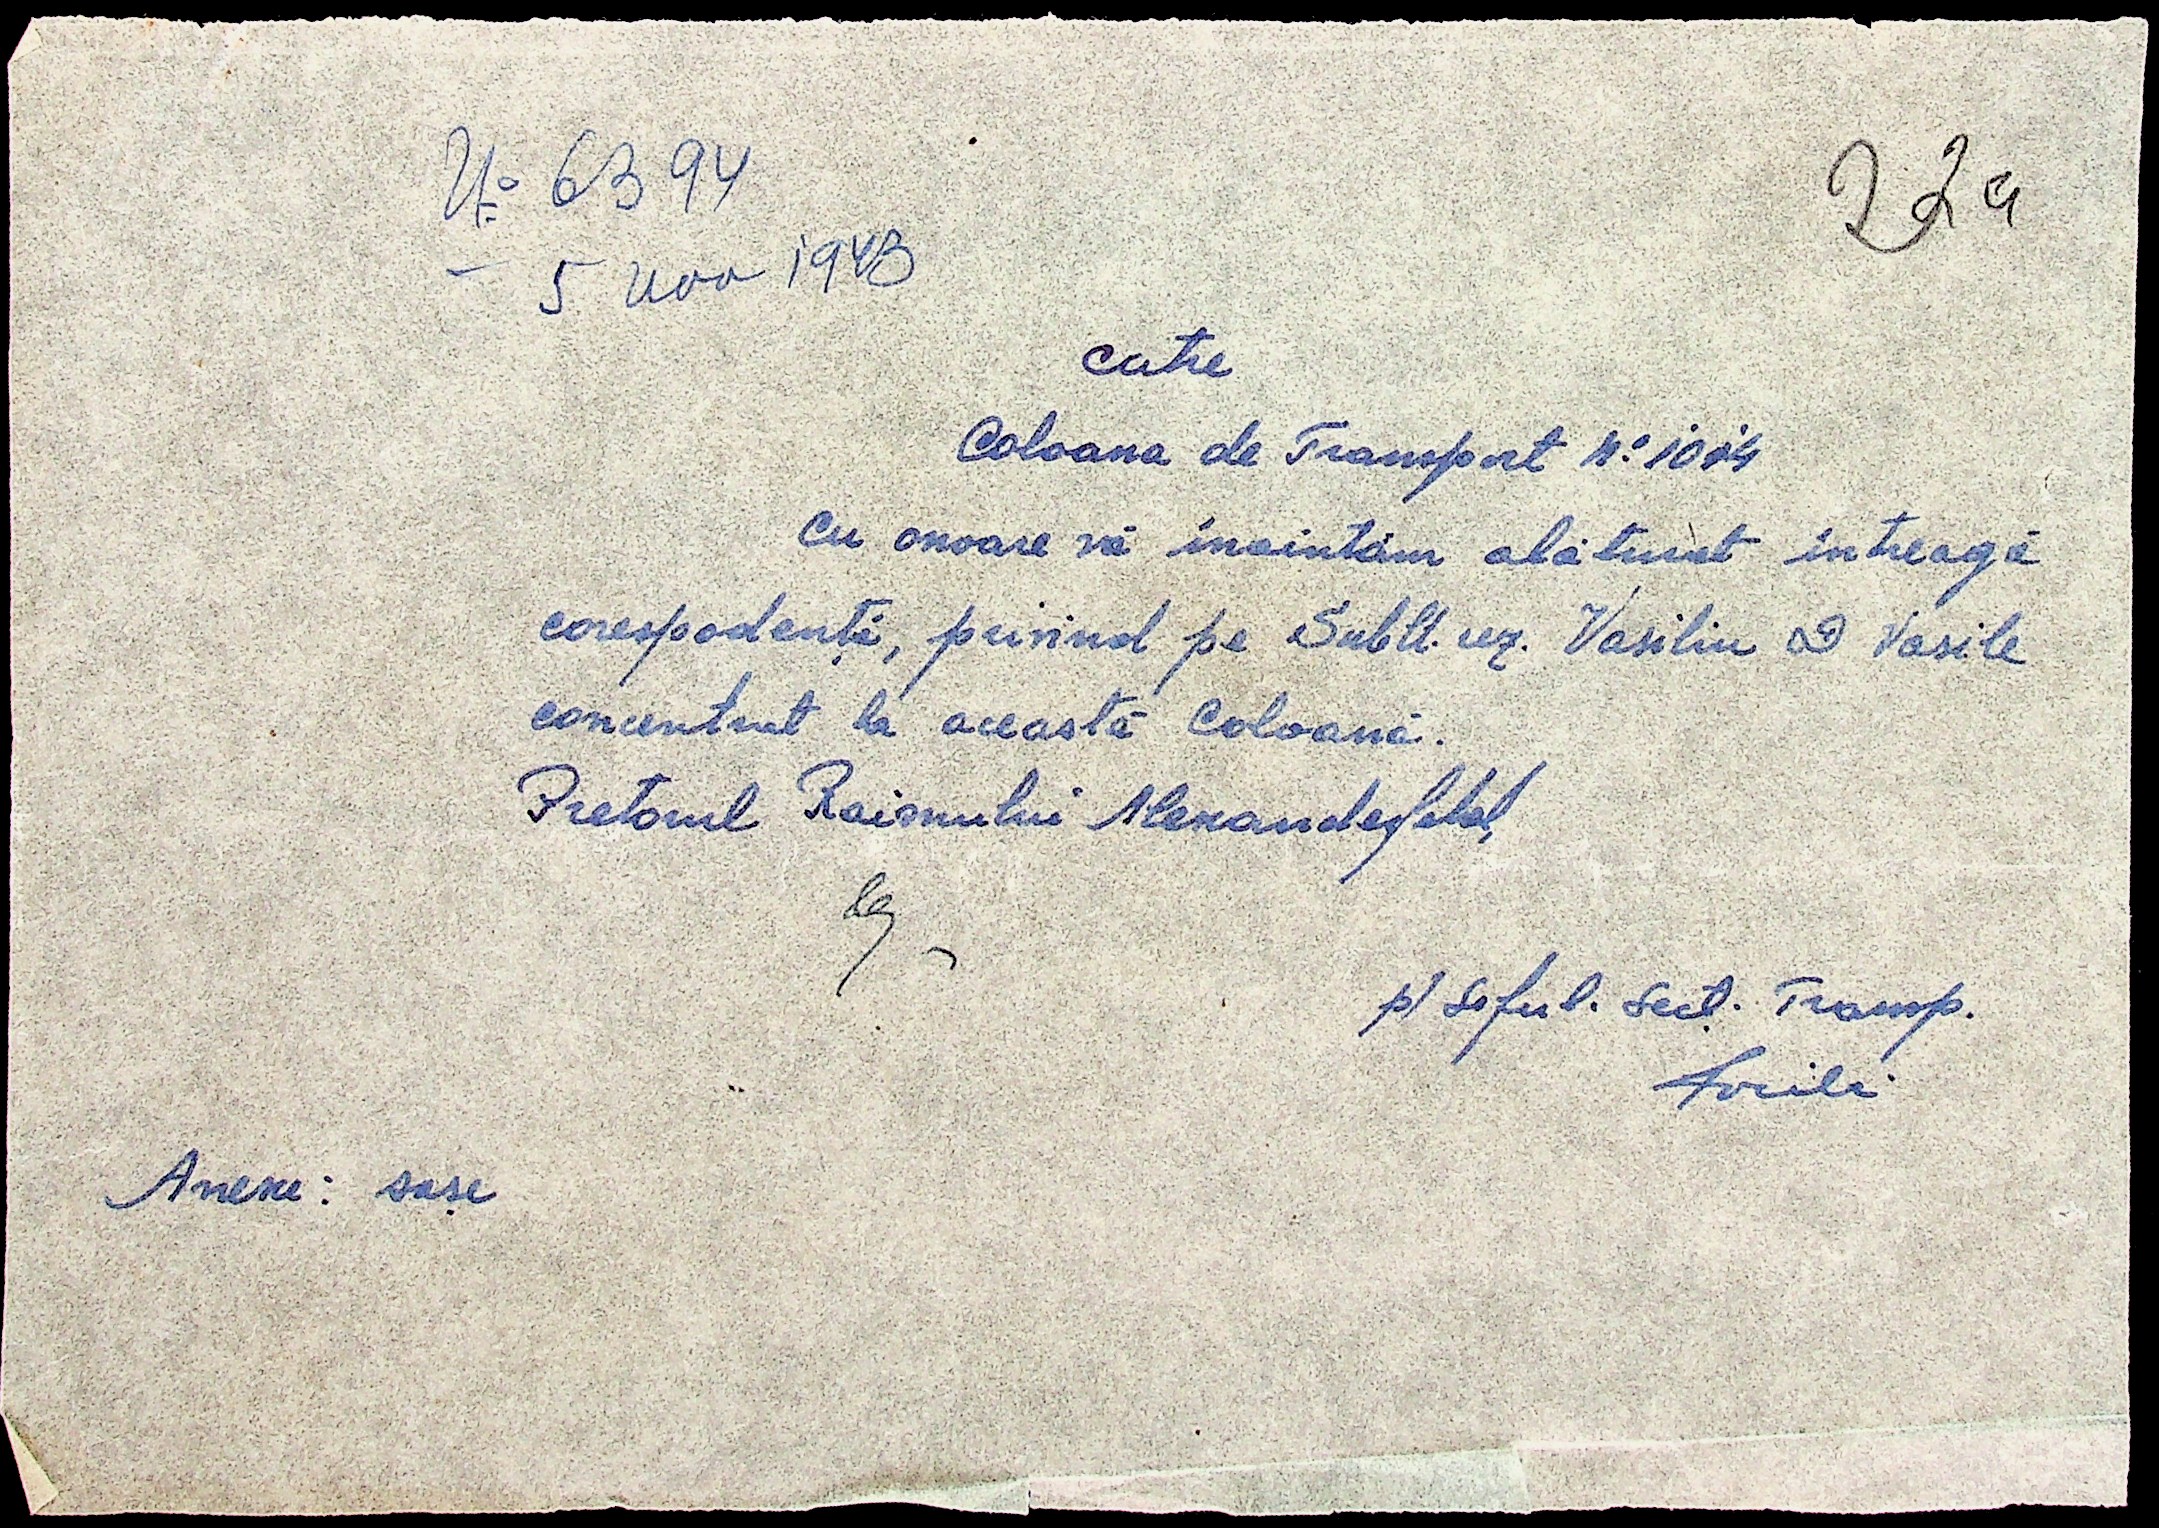 No 6394
– 5 Nov 1943
22a
catre
Coloana de Transport No 1014
Cu onoare vă inaintăm alăturat intreagă
corespodență, privind pe Sublt. rez. Vasiliu D Vasile
concentrat la această Coloană.
Pretorul Raionului Alexanderfeld,
p/ Seful. Sect. Transp.
Anexe: șase